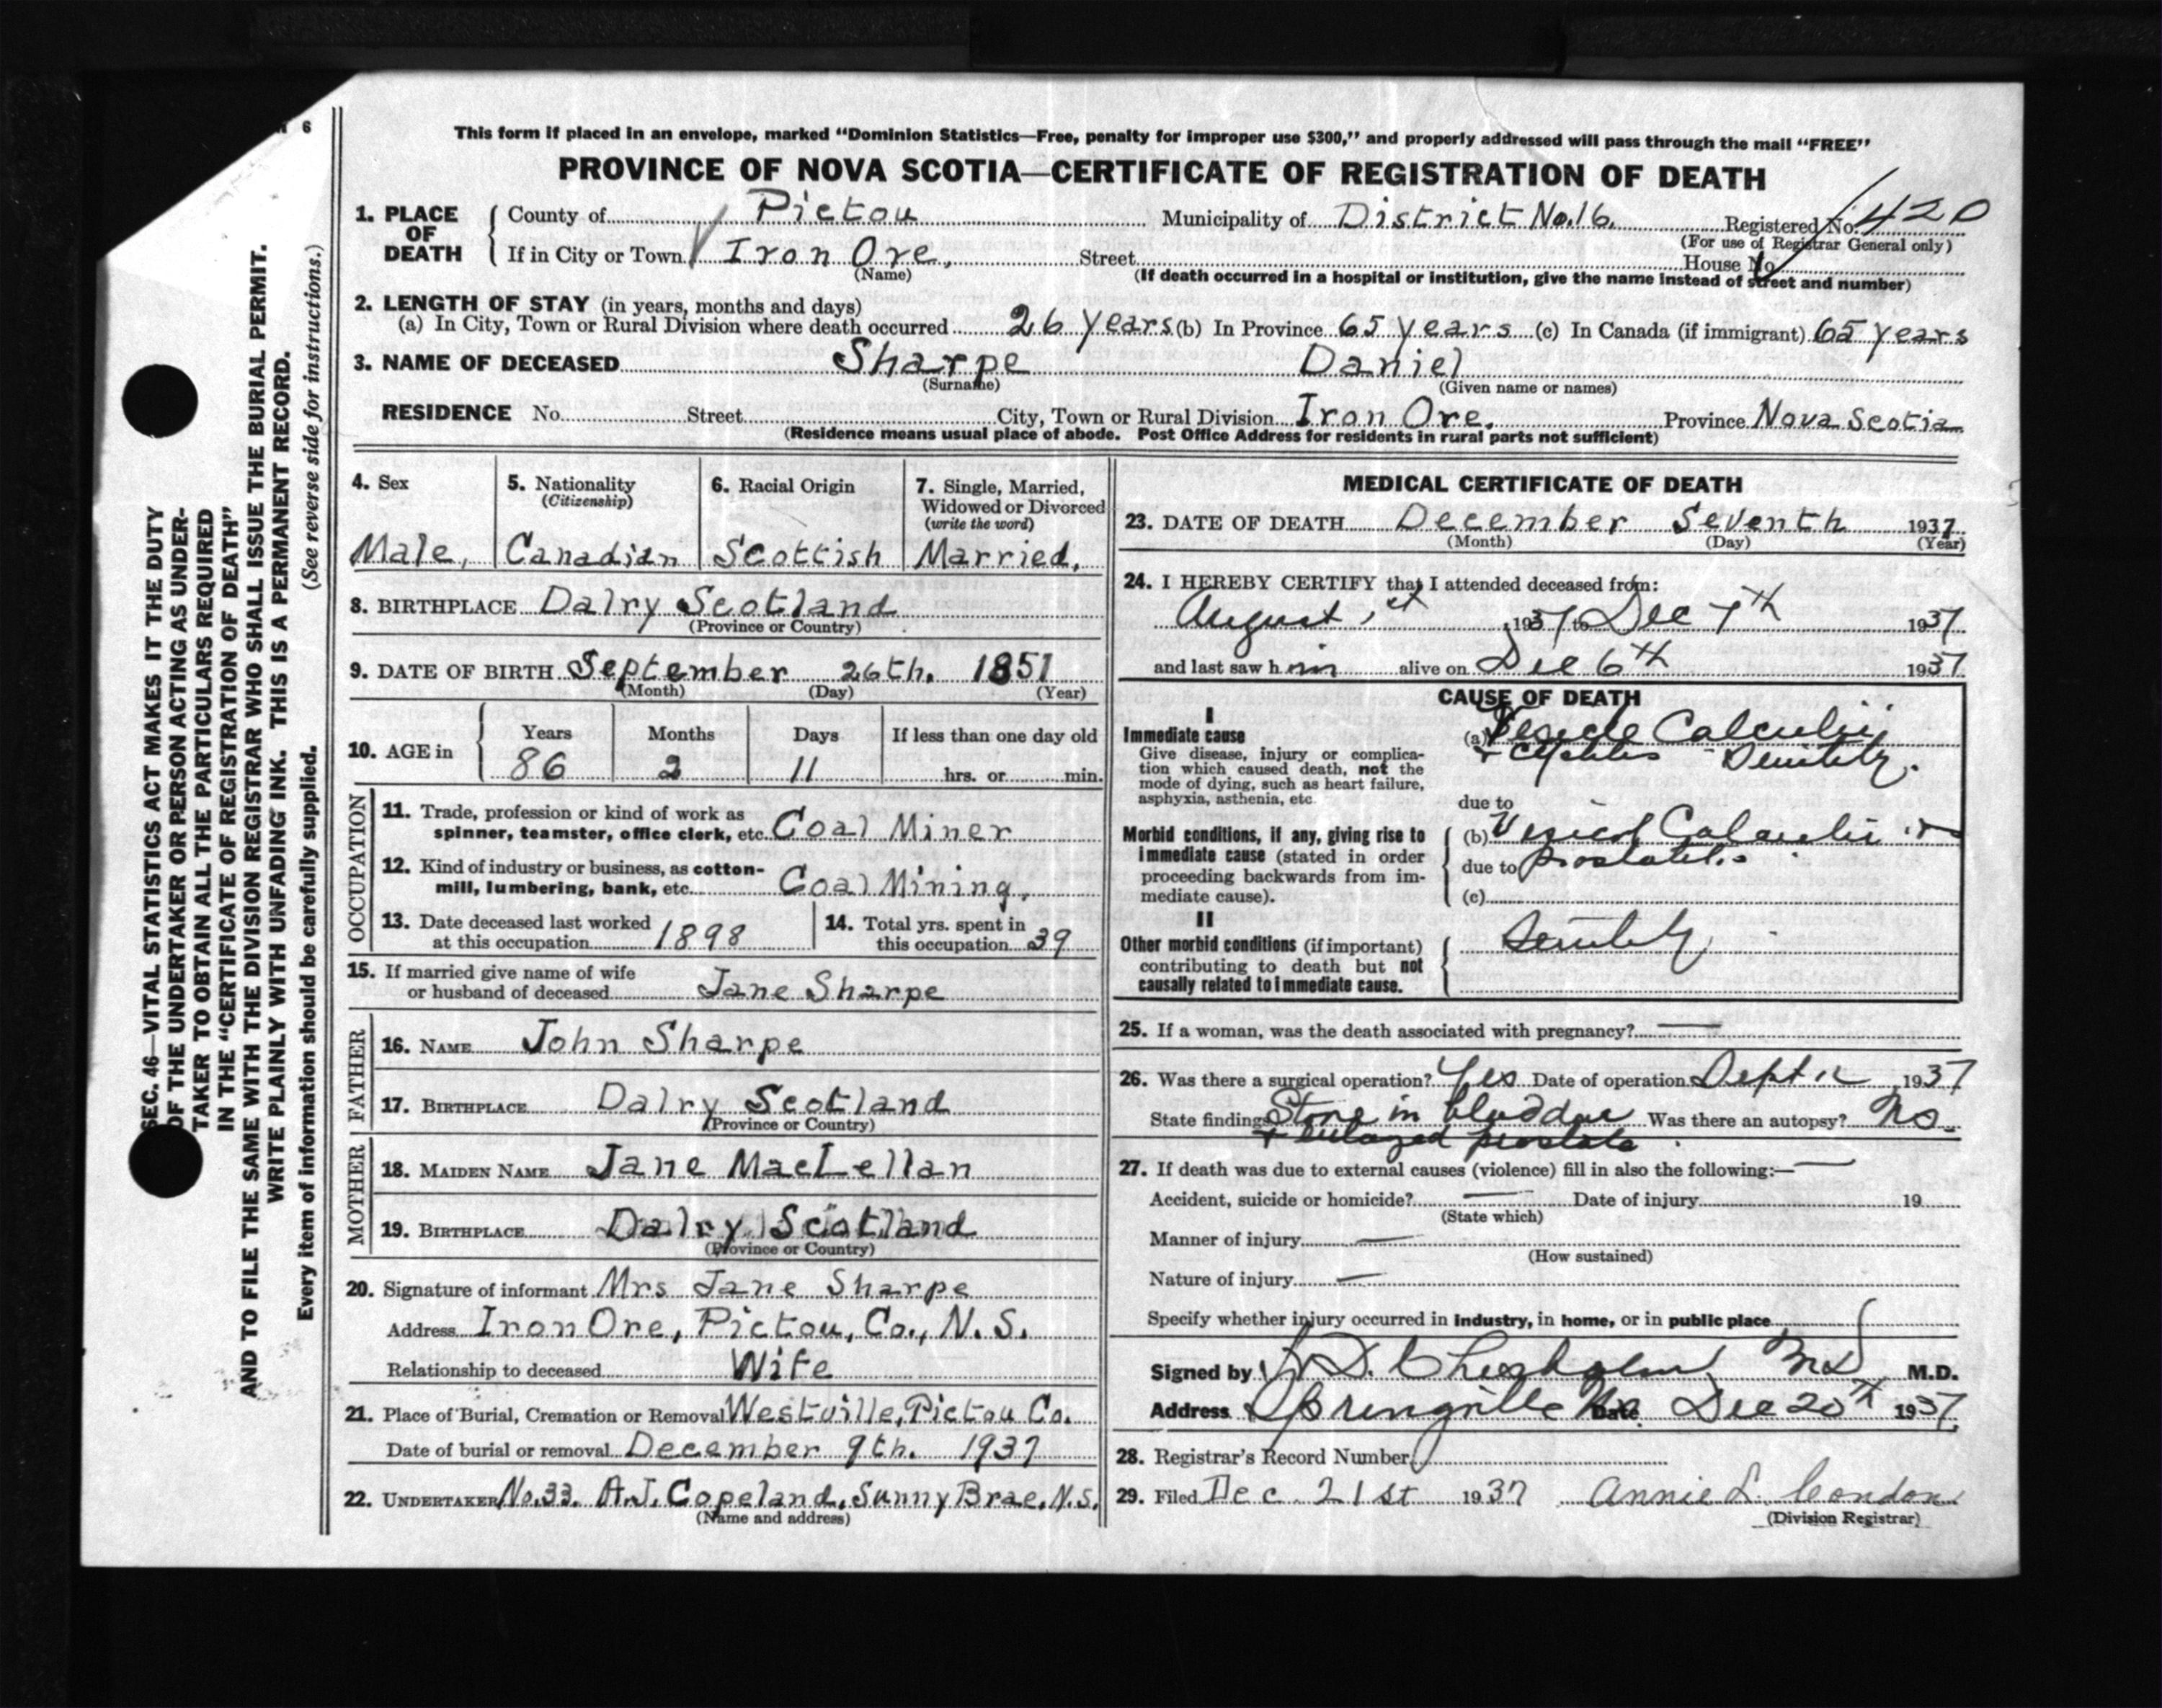 6
This form if placed in an envelope, marked “Dominion Statistics—Free, penalty for improper use $300,” and properly addressed will pass through the mail “FREE”
PROVINCE OF NOVA SCOTIA—CERTIFICATE OF REGISTRATION OF DEATH
1. PLACE OF DEATH
County of Pictou Municipality of District No.16. Registered No. 420
(For use of Registrar General only)
If in City or Town Iron Ore, Street House No.
(Name) (If death occurred in a hospital or institution, give the name instead of street and number)
2. LENGTH OF STAY (in years, months and days)
(a) In City, Town or Rural Division where death occurred 26 years (b) In Province 65 years (c) In Canada (if immigrant) 65 years
3. NAME OF DECEASED Sharpe Daniel
(Surname) (Given name or names)
RESIDENCE No. Street City, Town or Rural Division Iron Ore. Province Nova Scotia
(Residence means usual place of abode. Post Office Address for residents in rural parts not sufficient)
4. Sex
Male,
5. Nationality
(Citizenship)
Canadian
6. Racial Origin
Scottish
7. Single, Married,
Widowed or Divorced
(write the word)
Married.
8. BIRTHPLACE Dalry Scotland
(Province or Country)
9. DATE OF BIRTH September 26th. 1851
(Month) (Day) (Year)
10. AGE in Years Months Days If less than one day old
86 2 11 hrs. or min.
OCCUPATION
11. Trade, profession or kind of work as
spinner, teamster, office clerk, etc. Coal Miner
12. Kind of industry or business, as cotton-
mill, lumbering, bank, etc. Coal Mining.
13. Date deceased last worked
at this occupation 1898
14. Total yrs. spent in
this occupation 39
15. If married give name of wife
or husband of deceased Jane Sharpe
FATHER
16. NAME John Sharpe
17. BIRTHPLACE Dalry Scotland
(Province or Country)
MOTHER
18. MAIDEN NAME Jane MacLellan
19. BIRTHPLACE Dalry Scotland
(Province or Country)
20. Signature of informant Mrs Jane Sharpe
Address Iron Ore, Pictou, Co., N.S.
Relationship to deceased Wife
21. Place of Burial, Cremation or Removal Westville, Pictou Co.
Date of burial or removal December 9th. 1937
22. UNDERTAKER No.33. A.J. Copeland, Sunny Brae, N.S.
(Name and address)
MEDICAL CERTIFICATE OF DEATH
23. DATE OF DEATH December Seventh 1937
(Month) (Day) (Year)
24. I HEREBY CERTIFY that I attended deceased from:
August 1st 1937 to Dec 7th 1937
and last saw him alive on Dec 6th 1937
CAUSE OF DEATH
I
Immediate cause
Give disease, injury or complica-
tion which caused death, not the
mode of dying, such as heart failure,
asphyxia, asthenia, etc.
(a) Calculii
+ Cystitis
due to
Morbid conditions, if any, giving rise to
immediate cause (stated in order
proceeding backwards from im-
mediate cause).
(b) Vesical Calculii
due to prostatitis
(c)
II
Other morbid conditions (if important)
contributing to death but not
causally related to immediate cause.
Senility
25. If a woman, was the death associated with pregnancy? —
26. Was there a surgical operation? Yes Date of operation Sept 12 1937
State findings Stone in bladder Was there an autopsy? No.
+ enlarged prostate
27. If death was due to external causes (violence) fill in also the following:— —
Accident, suicide or homicide? — Date of injury 19
(State which)
Manner of injury —
(How sustained)
Nature of injury —
Specify whether injury occurred in industry, in home, or in public place
Signed by D. Chisholm MD M.D.
Address Springville NS Date Dec 20th 1937.
28. Registrar's Record Number
29. Filed Dec. 21st 1937 Annie L. Condon
(Division Registrar)
SEC. 46—VITAL STATISTICS ACT MAKES IT THE DUTY
OF THE UNDERTAKER OR PERSON ACTING AS UNDER-
TAKER TO OBTAIN ALL THE PARTICULARS REQUIRED
IN THE “CERTIFICATE OF REGISTRATION OF DEATH”
AND TO FILE THE SAME WITH THE DIVISION REGISTRAR WHO SHALL ISSUE THE BURIAL PERMIT.
WRITE PLAINLY WITH UNFADING INK. THIS IS A PERMANENT RECORD.
Every item of information should be carefully supplied. (See reverse side for instructions.)